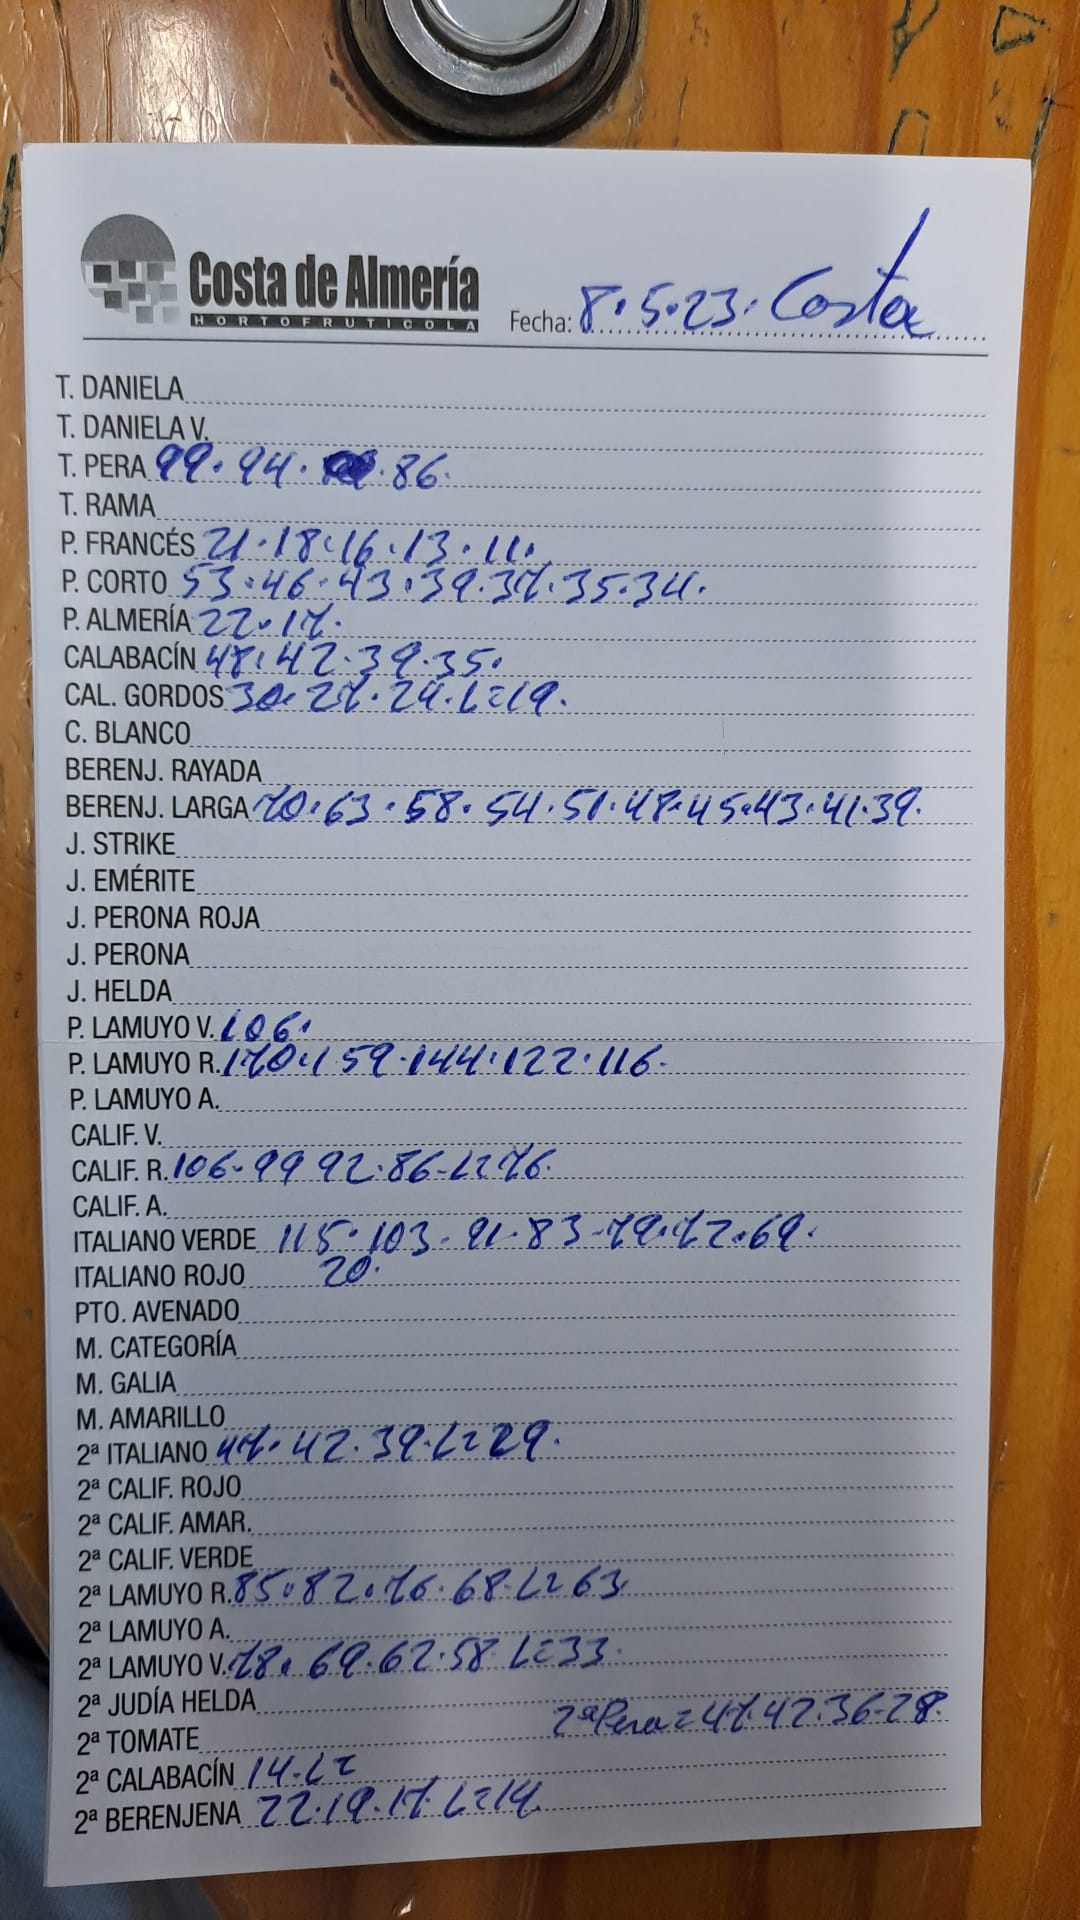 Costa de Almería
HORTOFRUTICOLA
Fecha: 8.5.23. Costa
T. DANIELA
T. DANIELA V.
T. PERA 99.94. .86.
T. RAMA
P. FRANCÉS 21.18.16.13.11.
P. CORTO 53.46.43.39.37.35.34.
P. ALMERÍA 22.17.
CALABACÍN 48.42.39.35.
CAL. GORDOS 30.27.24.L=19.
C. BLANCO
BERENJ. RAYADA
BERENJ. LARGA 70.63.58.54.51.48.45.43.41.39.
J. STRIKE
J. EMÉRITE
J. PERONA ROJA
J. PERONA
J. HELDA
P. LAMUYO V. 106.
P. LAMUYO R. 170.159.144.122.116.
P. LAMUYO A.
CALIF. V.
CALIF. R. 106-99 92.86-L=76.
CALIF. A.
ITALIANO VERDE 115.103.91.83-79.72.69.
ITALIANO ROJO 20.
PTO. AVENADO
M. CATEGORÍA
M. GALIA
M. AMARILLO
2ª ITALIANO 47.42.39.L=29.
2ª CALIF. ROJO
2ª CALIF. AMAR.
2ª CALIF. VERDE
2ª LAMUYO R. 85.82.76.68-L=63.
2ª LAMUYO A.
2ª LAMUYO V. 78.69.62.58 L=33.
2ª JUDÍA HELDA
2ª Pera=47.42.36-28.
2ª TOMATE
2ª CALABACÍN 14-L=
2ª BERENJENA 22.19.17.L=14.